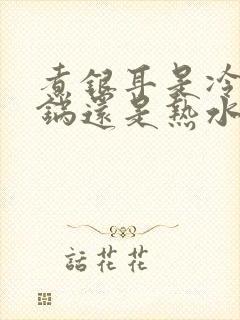 煮銀耳是冷
鍋還是熱水
話花花